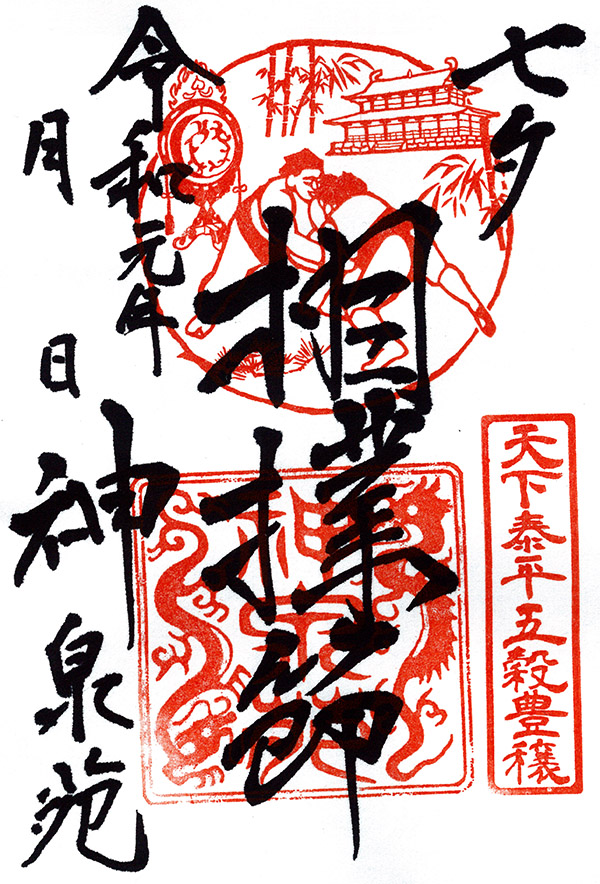 七夕
天下泰平五穀豊穣
相撲節
令和元年
月 日
神泉苑